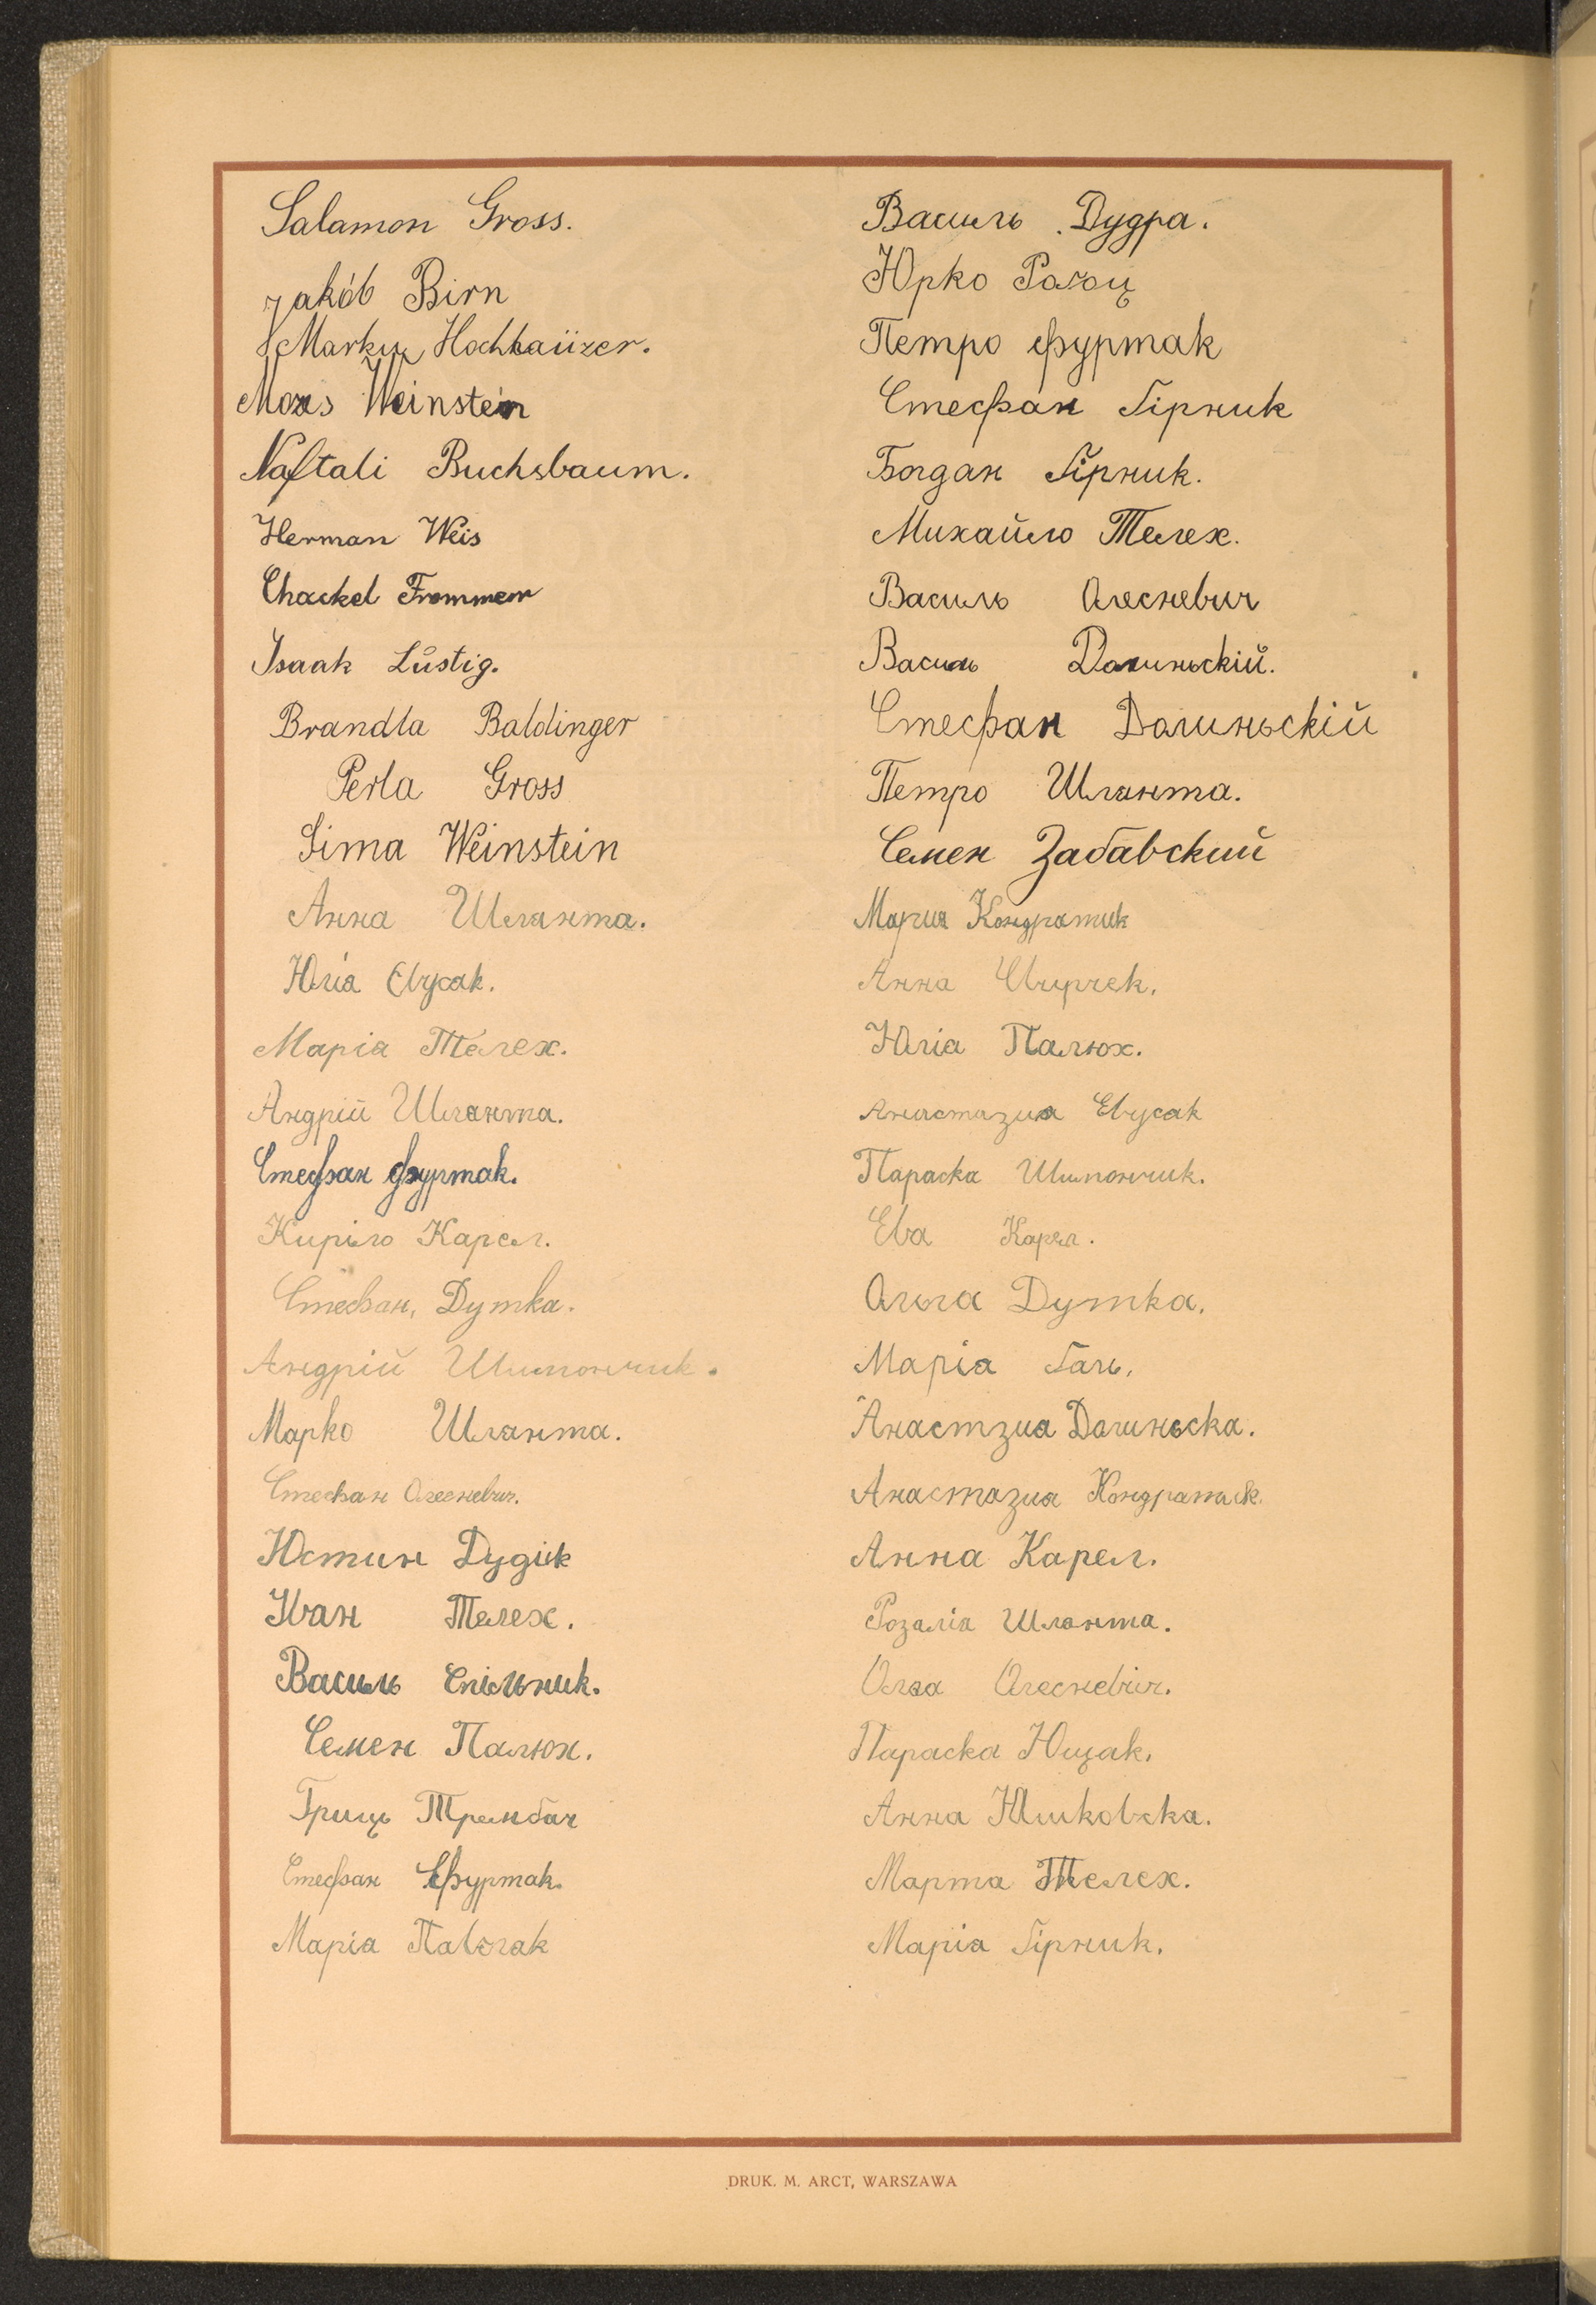 Salamon Gross.
Jakób Birn
Markus Hochhaüzer.
Mozes Weinstein
Naftali Buchsbaum.
Herman Weis
Chackel Frommer
Isaak Lŭstig.
Brandla Baldinger
Perla Gross
Sima Weinstein
Анна Шлянта.
Юлія Євусак.
Маріа Телех.
Андрій Шлянта.
Стефан Фуртак.
Киріло Карел.
Стефан, Дутка.
Андрій Шимончик.
Марко Шлянта.
Стефан Олесневич.
Юстин Дудік
Іван Телех.
Василь Спільник.
Семен Палюх.
Гриць Трембач
Стефан Фуртак.
Маріа Павлчак
Василь Дудра.
Юрко
Петро Фуртак
Стефан Гірник
Богдан Гірник.
Михайло Телех.
Василь Олесневич
Василь Долиньскій.
Стефан Долиньскій
Петро Шлянта.
Семен Забавский
Мария Кондратик
Анна
Юліа Палюх.
Анастазия Евусак
Параска Шимончик.
Ева Карел.
Ольга Дутка.
Маріа Галь.
Анастзиа Долиньска.
Анастазиа Кондратик.
Анна Карел.
Розаліа Шлянта.
Олга Олесневіч.
Параска Ющак.
Анна
Марта Телех.
Маріа Гірник.
DRUK. M. ARCT, WARSZAWA